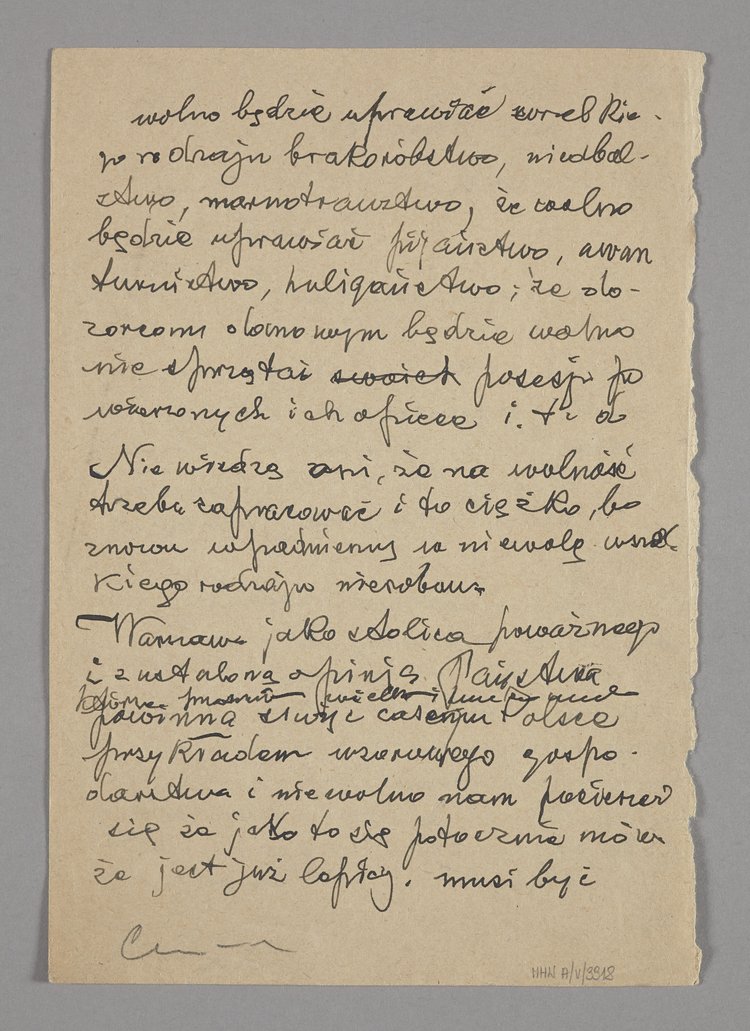 wolno będzie uprawiać wszelkie-
go rodzaju brakoróbstwo, niedbal-
stwo, marnotrawstwo, że wolno
będzie uprawiać pijaństwo, awan
turnictwo, huligaństwo; że do-
zorcom domowym będzie wolno
nie sprzątać swoich posesji po
wierzonych ich opiece i. t. d
Nie wiedzą oni, że na wolność
trzeba zapracować i to ciężko, bo
znowu wpadniemy w niewolę wszel-
kiego rodzaju nierobów.
Warszawa jako stolica poważnego
i z ustaloną opinją Państwa
która
powinna służyć całej Polsce
przykładem wzorowego gospo-
darstwa i nie wolno nam pocieszać
się że jako to się potocznie mówi
że jest już lepiej. musi być
MHW A/V/3918